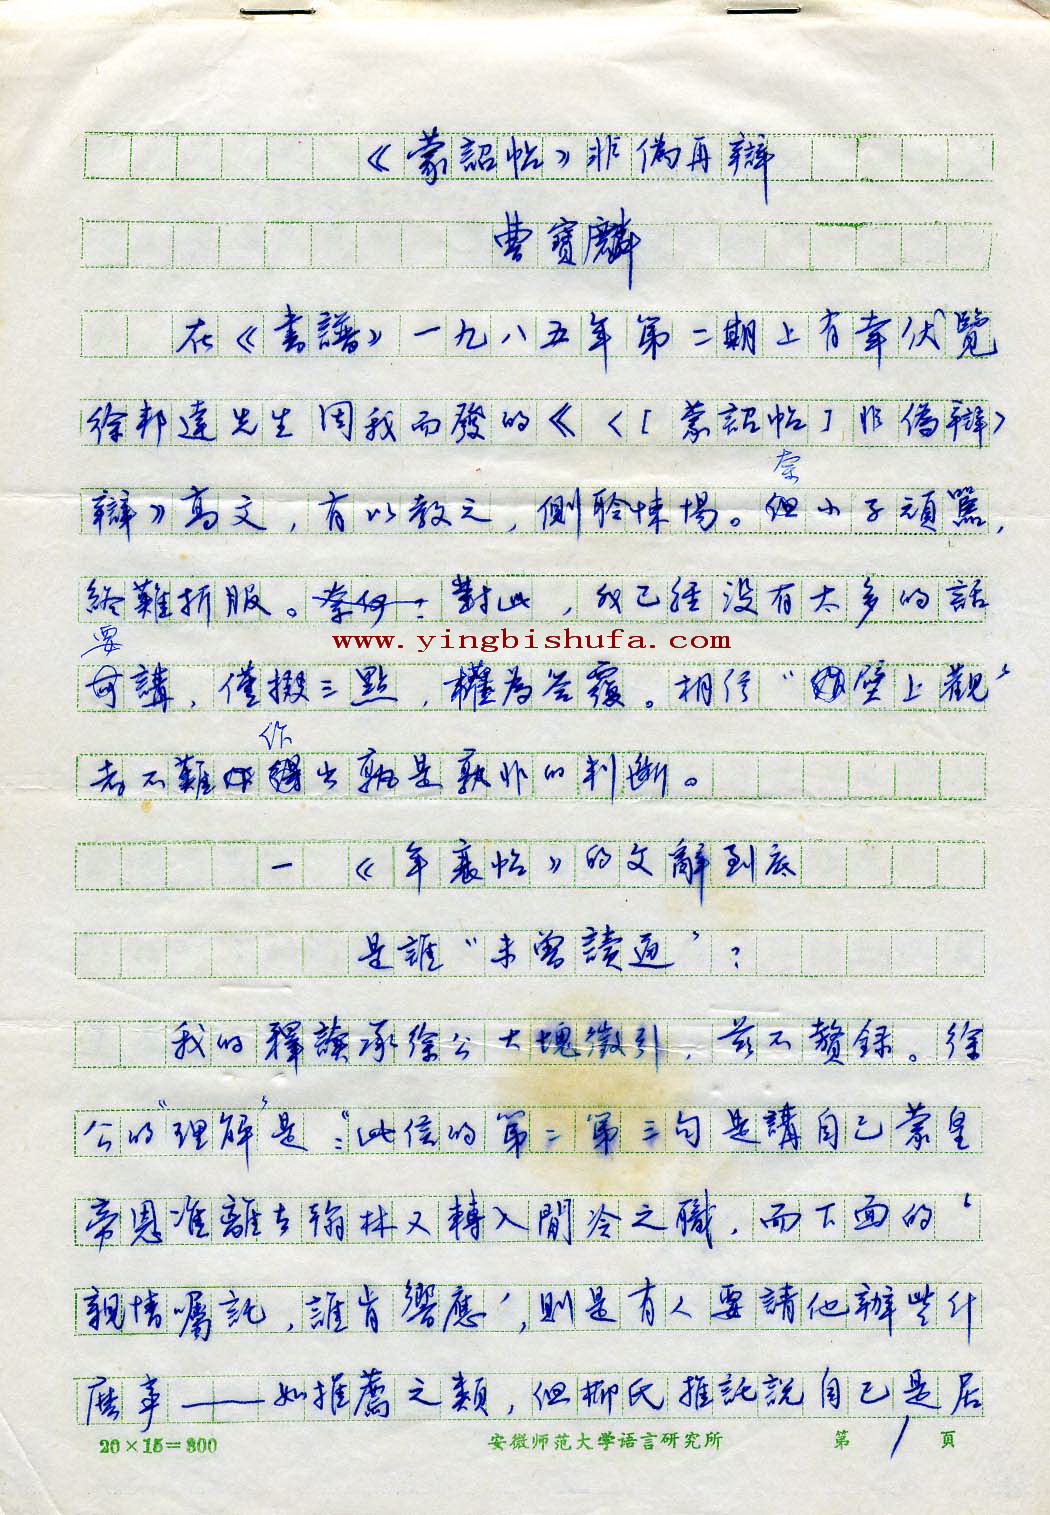 《蒙詔帖》非偽再辯
曹寶麟
在《書譜》一九八五年第二期上有幸伏覽
徐邦達先生因我而發的《〈［蒙詔帖］非偽辯〉
奈
辯》高文，有以教之，側聆悚惕。但小子頑嚚，
終難折服。奈何：對此，我已經没有太多的話
要
可講，僅掇三點，權為答覆。相信“壁上觀”
作
者不難得出孰是孰非的判斷。
一 《年衰帖》的文辭到底
是誰“未曾讀通”？
我的釋讀承徐公大塊徵引，兹不贅録。徐
公的“理解”是：“此信的第二第三句是講自己蒙皇
帝恩准離去翰林又轉入閒冷之職，而下面的‘
親情囑託，誰肯響應’，則是有人要請他辦些什
麽事——如推薦之類，但柳氏推託説自己是居
www.yingbishufa.com
20×15=300 安徽师范大学语言研究所 第 1 頁